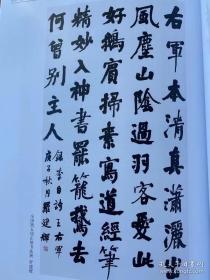 右軍本清真瀟灑
風塵山陰過羽客愛此
好鵝賓掃素寫道經筆
精妙入神書罷籠鵝去
何曾別主人
錄李白詩王右軍
庚子秋月